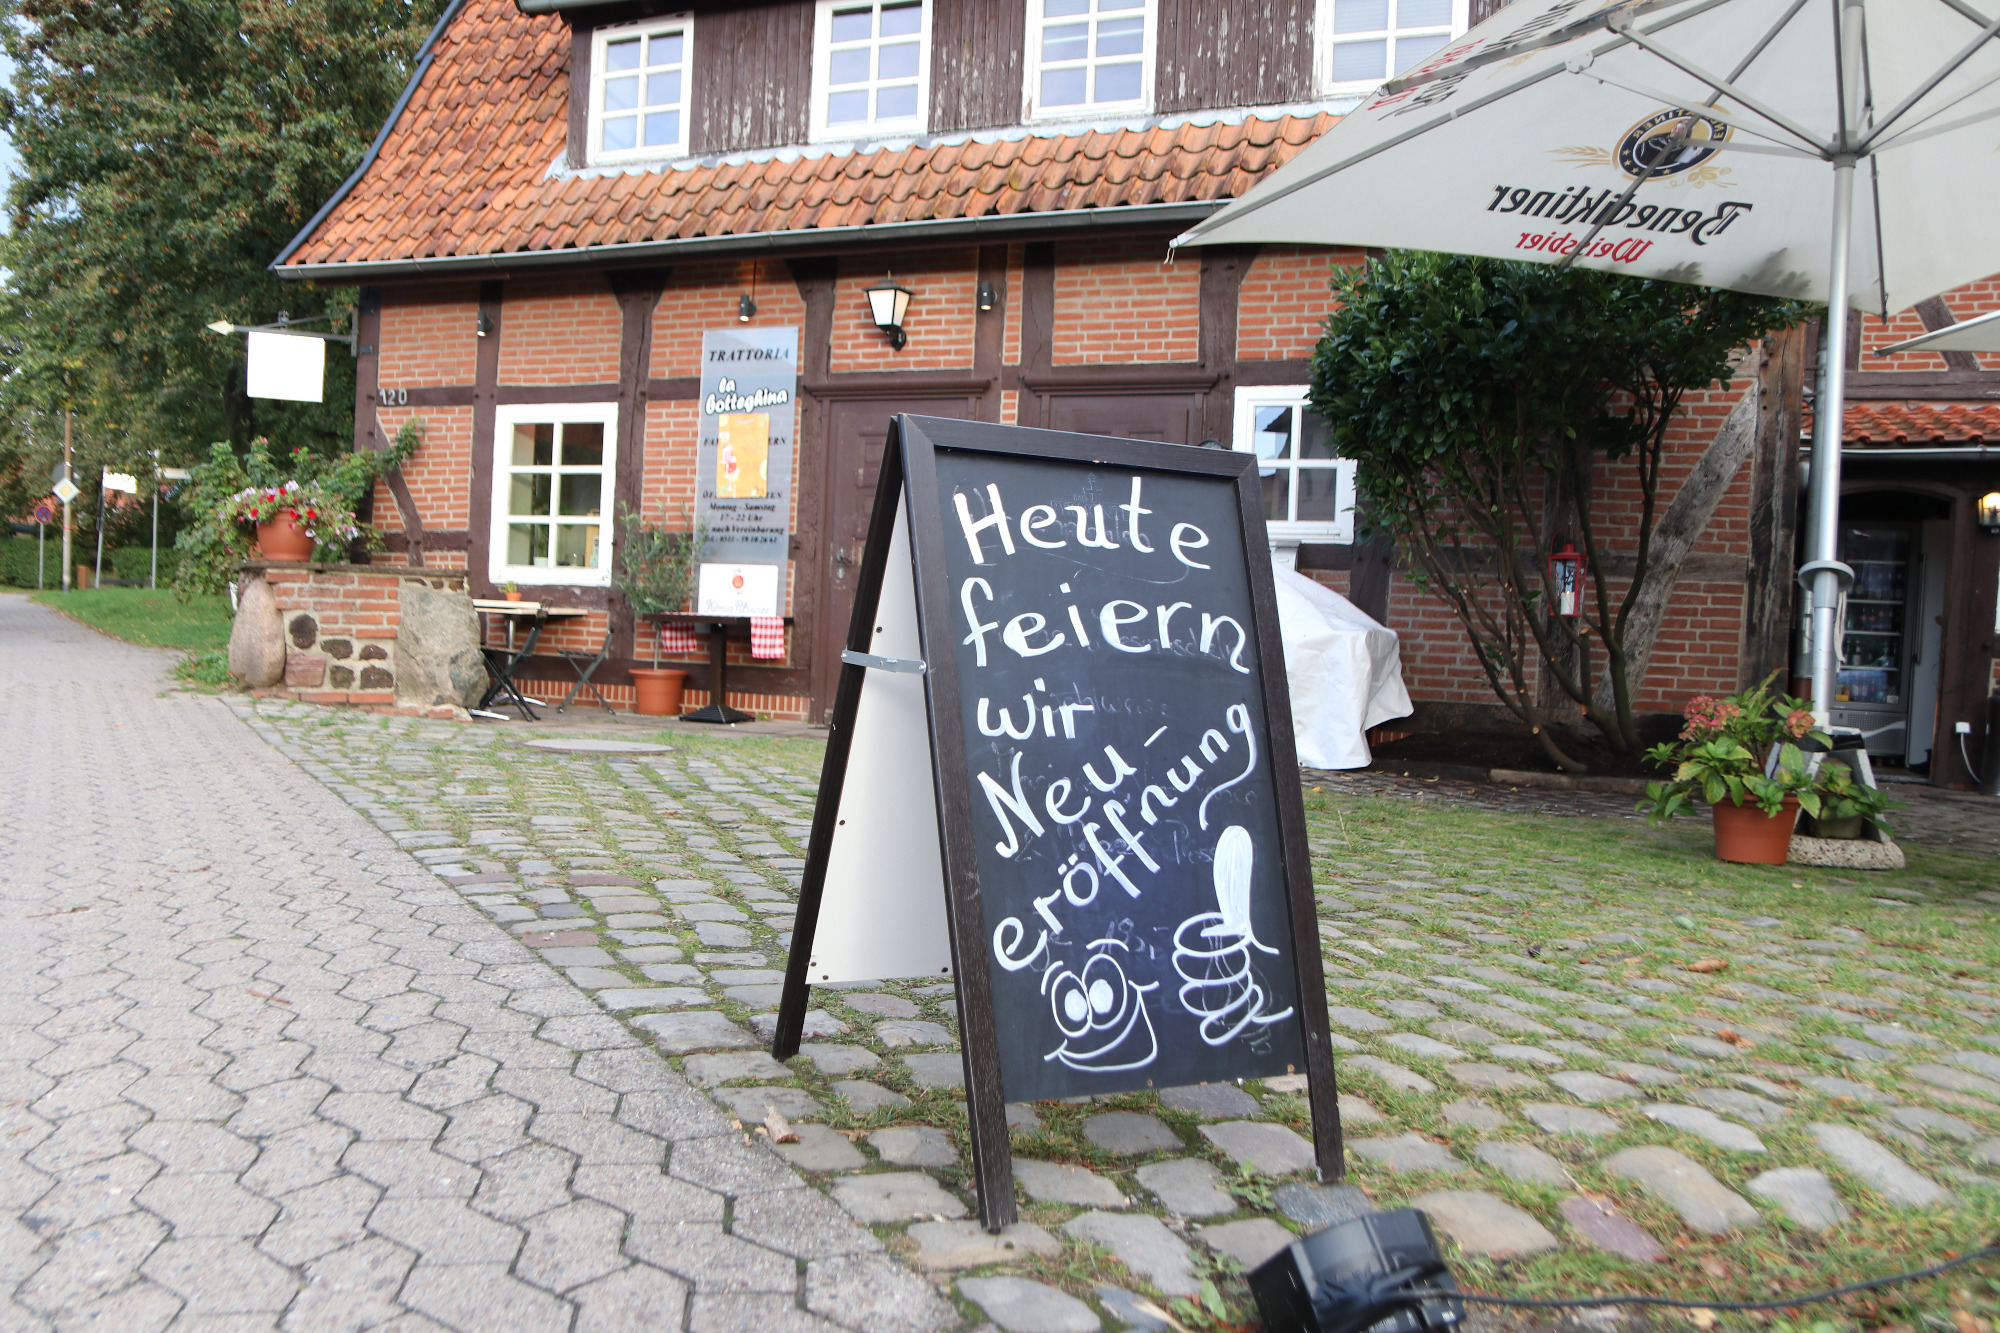 Heute
feiern
wir
Neu-
eröffnung
TRATTORIA
la
botteghina
Montag - Samstag
17 - 22 Uhr
nach Vereinbarung
König Pilsener
120
Benediktiner
Weissbier